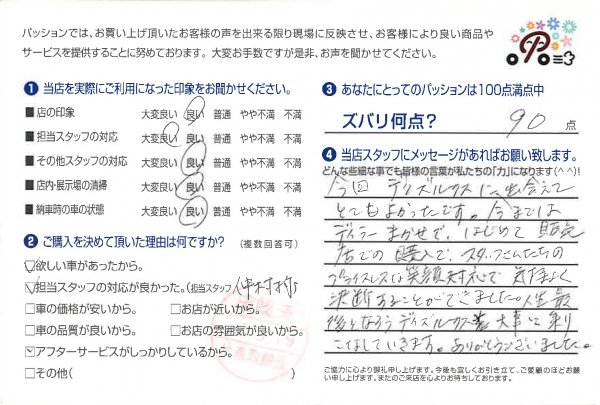 パッションでは、お買い上げ頂いたお客様の声を出来る限り現場に反映させ、お客様により良い商品や
サービスを提供することに努めております。 大変お手数ですが是非、お声を聞かせてください。
❶ 当店を実際にご利用になった印象をお聞かせください。
■店の印象 大変良い 良い 普通 やや不満 不満
■担当スタッフの対応 大変良い 良い 普通 やや不満 不満
■その他スタッフの対応 大変良い 良い 普通 やや不満 不満
■店内・展示場の清掃 大変良い 良い 普通 やや不満 不満
■納車時の車の状態 大変良い 良い 普通 やや不満 不満
❷ ご購入を決めて頂いた理由は何ですか? (複数回答可)
□欲しい車があったから。
□担当スタッフの対応が良かった。(担当スタッフ 様)
□車の価格が安いから。 □お店が近いから。
□車の品質が良いから。 □お店の雰囲気が良いから。
□アフターサービスがしっかりしているから。
□その他( )
❸ あなたにとってのパッションは100点満点中
ズバリ何点? 90 点
❹ 当店スタッフにメッセージがあればお願い致します。
どんな些細な事でも皆様の言葉が私たちの「力」になります(^^)!
今回 ディズルクスに出会えて
とてもよかったです。今までは
ディラーまかせで、はじめて 販売
店での購入で、スタッフさんたちの
プライスレスな笑顔対応で 気持よく
決断することができました。人生最
後となろうディズルクス 大事に乗り
こなしていきます。ありがとうございました。
ご協力に心より御礼申し上げます。今後も宜しくお引き立て、ご愛顧のほどお願
い申し上げます。またのご来店を心よりお待ちしております。